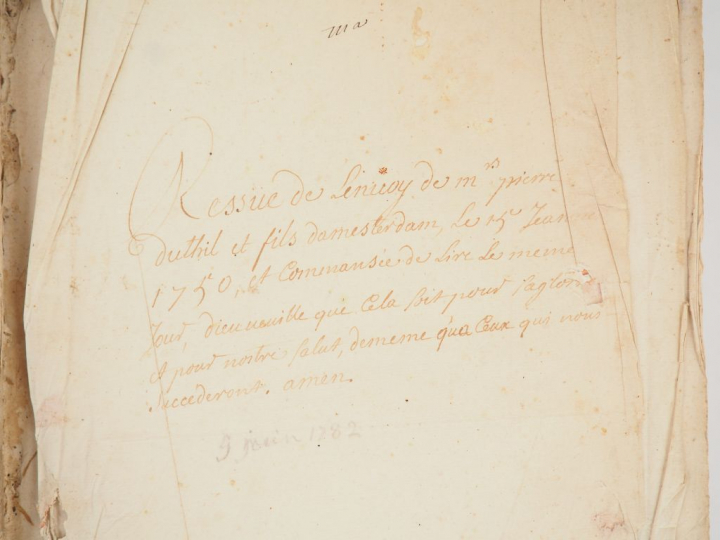 ma
Ressue de Lenvoy de mrs pierre
duthil et fils damesterdam, Le 15e Jeanvie
1750, et Commansée de Lire Le meme
Jour, dieu veuille que Cela soit pour sagloire
et pour nostre salut, dememe qua Ceux qui nous
succederont. amen.
9 juin 1782